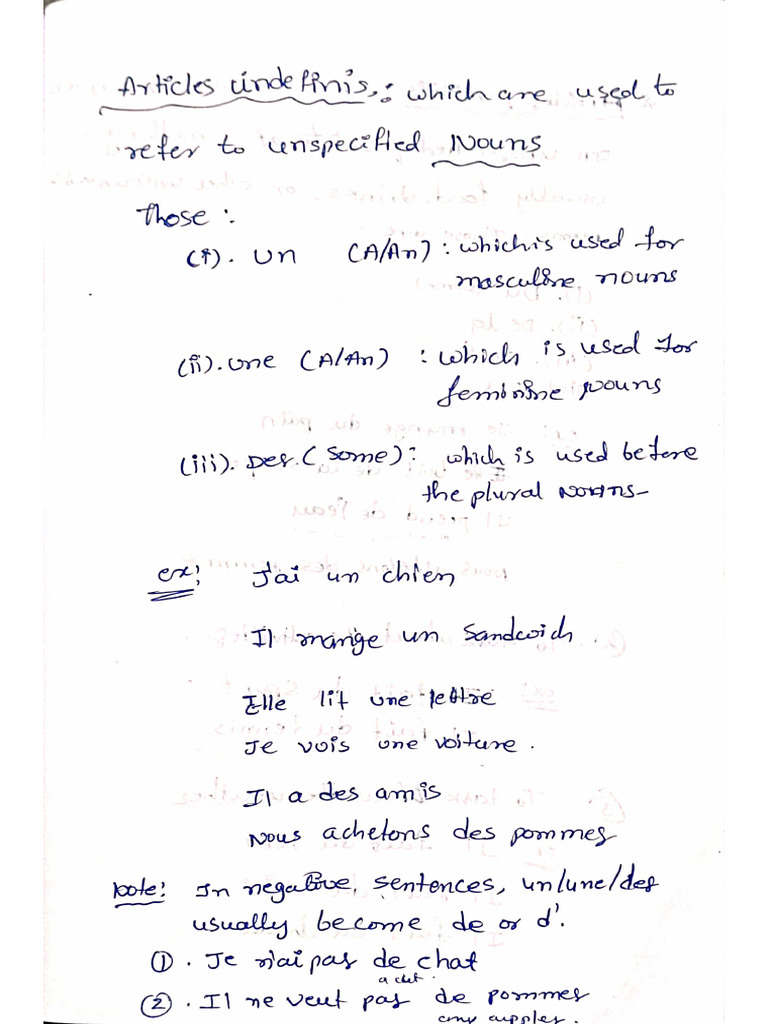 Articles indefinis,: which are used to
refer to unspecified Nouns
Those :
(i). un (A/An) : which is used for
masculine nouns
(ii). une (A/An) : which is used for
feminine nouns
(iii). Des. (some) : which is used before
the plural nouns-
ex: J'ai un chien
Il mange un sandwich.
Elle lit une lettre
Je vois une voiture.
Il a des amis
Nous achetons des pommes
Note: In negative, sentences, un/une/des
usually, become de or d'.
①. Je n'ai pas de chat
②. Il ne veut pas de pommes
any apples.